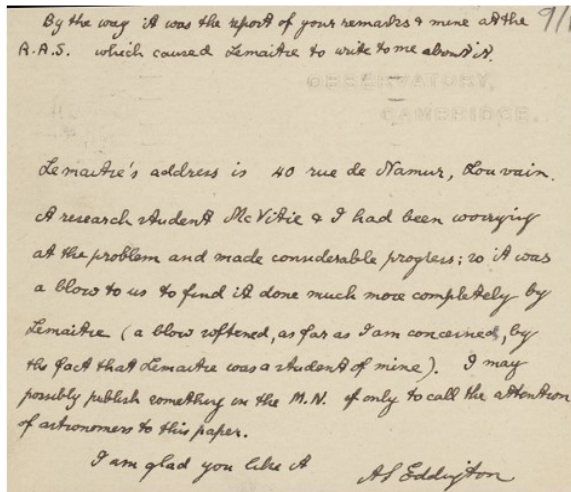 By the way it was the report of your remarks & mine at the
R.A.S. which caused Lemaitre to write to me about it.
OBSERVATORY,
CAMBRIDGE.
Lemaitre's address is 40 rue de Namur, Louvain.
A research student McVitie & I had been worrying
at the problem and made considerable progress; so it was
a blow to us to find it done much more completely by
Lemaitre (a blow softened, as far as I am concerned, by
the fact that Lemaitre was a student of mine). I may
possibly publish something in the M.N. if only to call the attention
of astronomers to this paper.
I am glad you like it
AS Eddington